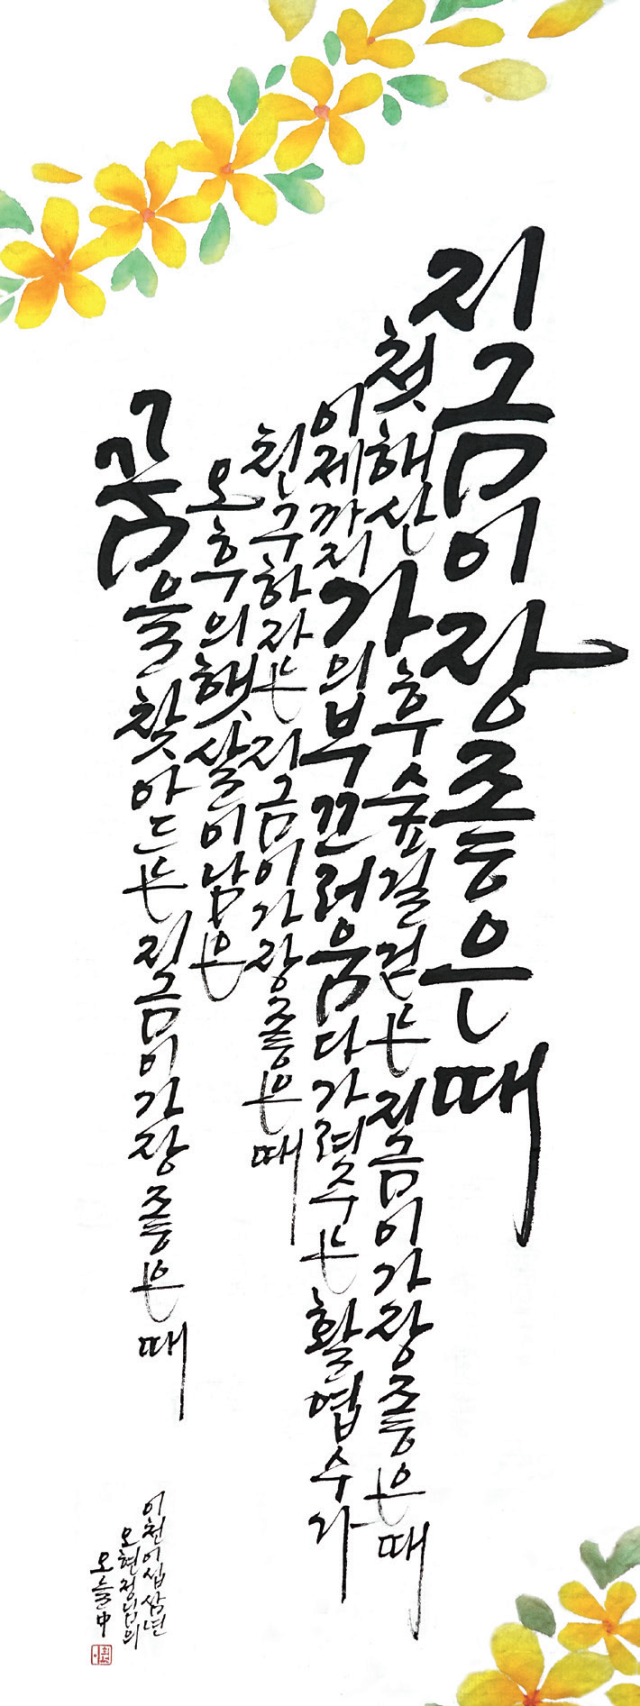 지금이 가장 좋은 때
첫 해산 후 숲길 걷는 지금이 가장 좋은 때
이제까지의 부끄러움 다 가려주는 활엽수가
친구하자는 지금이 가장 좋은 때
오후의 햇살이 남은
꿈을 찾아드는 지금이 가장 좋은 때
이천이십삼년
오현정님의
오늘中